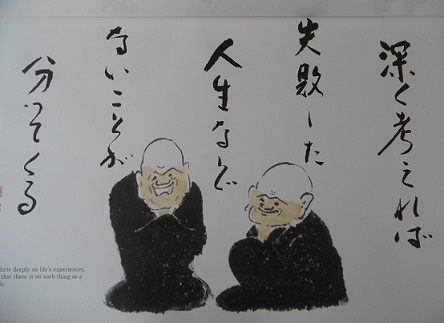 深く考えれば
失敗した
人生など
ないことが
分ってくる
deeply on life's experiences,
that there is no such thing as a